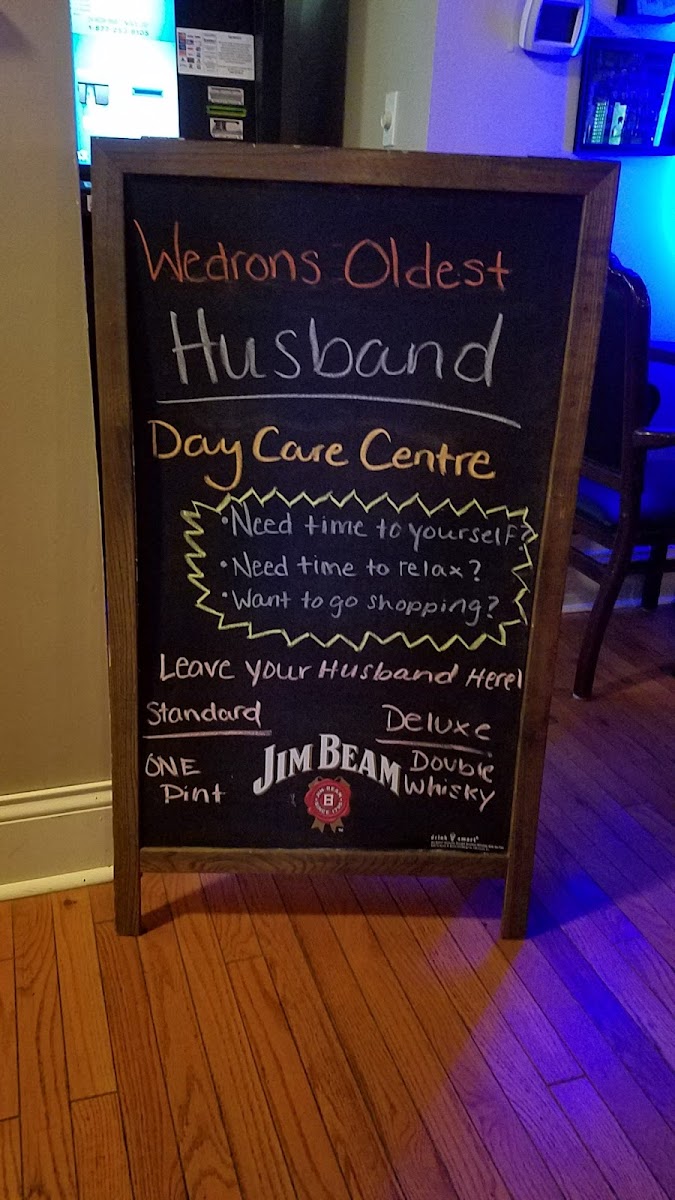 Wedrons Oldest
Husband
Day Care Centre
• Need time to yourself?
• Need time to relax?
• Want to go shopping?
Leave your Husband Here!
Standard
ONE
Pint
Deluxe
Double
Whisky
JIM BEAM
B
drink smart